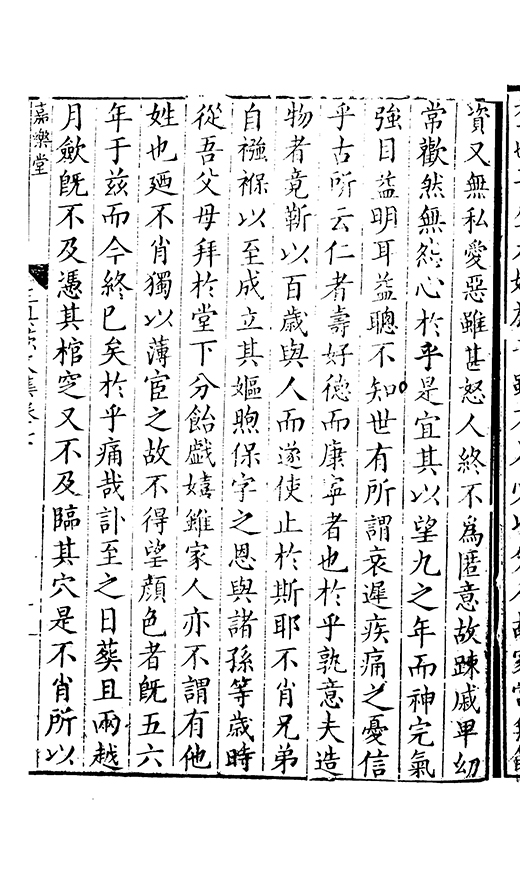 資又無私愛惡雖甚怒人終不為匿意故踈戚卑幼
常歡然無結心於乎是宜其以望九之年而神完氣
強目益明耳益聰不知世有所謂衰遲疾痛之憂信
乎古所云仁者壽好德而康寧者也於乎孰意夫造
物者竟靳以百歲與人而遂使止於斯耶不肖兄弟
自襁褓以至成立其嫗煦保字之恩與諸孫等歲時
從吾父母拜於堂下分飴戲嬉雖家人亦不謂有他
姓也廼不肖獨以薄宦之故不得望顏色者既五六
年于茲而今終已矣於乎痛哉訃至之日葬且兩越
月斂既不及憑其棺窆又不及臨其穴是不肖所以
嘉樂堂